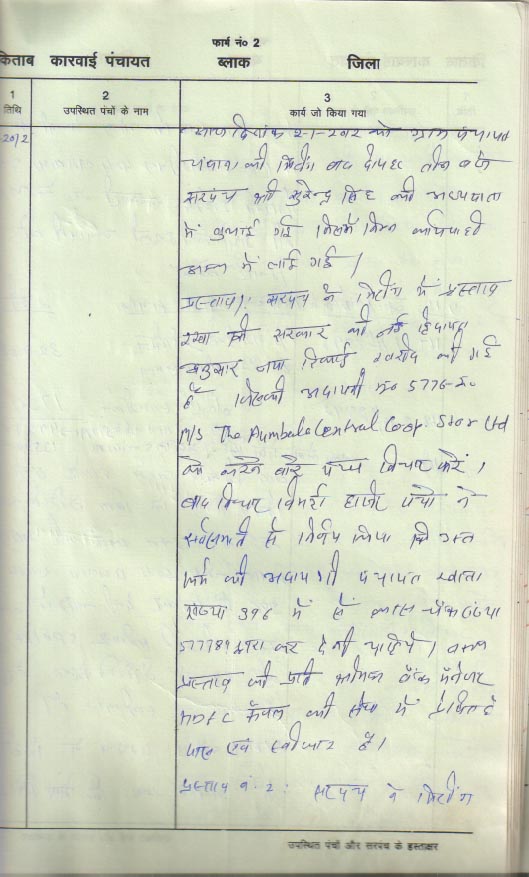 फार्म नं० 2
किताब कारवाई पंचायत ब्लाक जिला
1 2 3
तिथि उपस्थित पंचों के नाम कार्य जो किया गया
2012 आज दिनांक 2-1-2012 को ग्राम पंचायत
की मिटिंग बाद दोपहर तीन बजे
सरपंच श्री सुरेन्द्र सिंह की अध्यक्षता
में बुलाई गई जिसमें निम्न कार्यवाही
अमल में लाई गई।
प्रस्ताव 1: सरपंच ने मिटींग में प्रस्ताव
रखा की सरकार की नई हिदायत
अनुसार नया रिकार्ड खरीद की गई
है जिसकी अदायगी मु० 5776-रु०
M/S The Aumbala Central Coop Stor Ltd
को करने बारे पंच विचार करें।
बाद विचार विमर्श हाजर पंचो ने
सर्वसमति से निर्णय लिया कि उक्त
फर्म की अदायगी पंचायत खाता
संख्या 396 में से चैक संख्या
577789 द्वारा कर देनी चाहिये।
प्रस्ताव की प्रति बैंक मैनेजर
HDFC कैंथल की सेवा में प्रेषित है
पास एवं स्वीकार है।
प्रस्ताव नं. 2: सरपंच ने मिटींग
उपस्थित पंचों और सरपंच के हस्ताक्षर